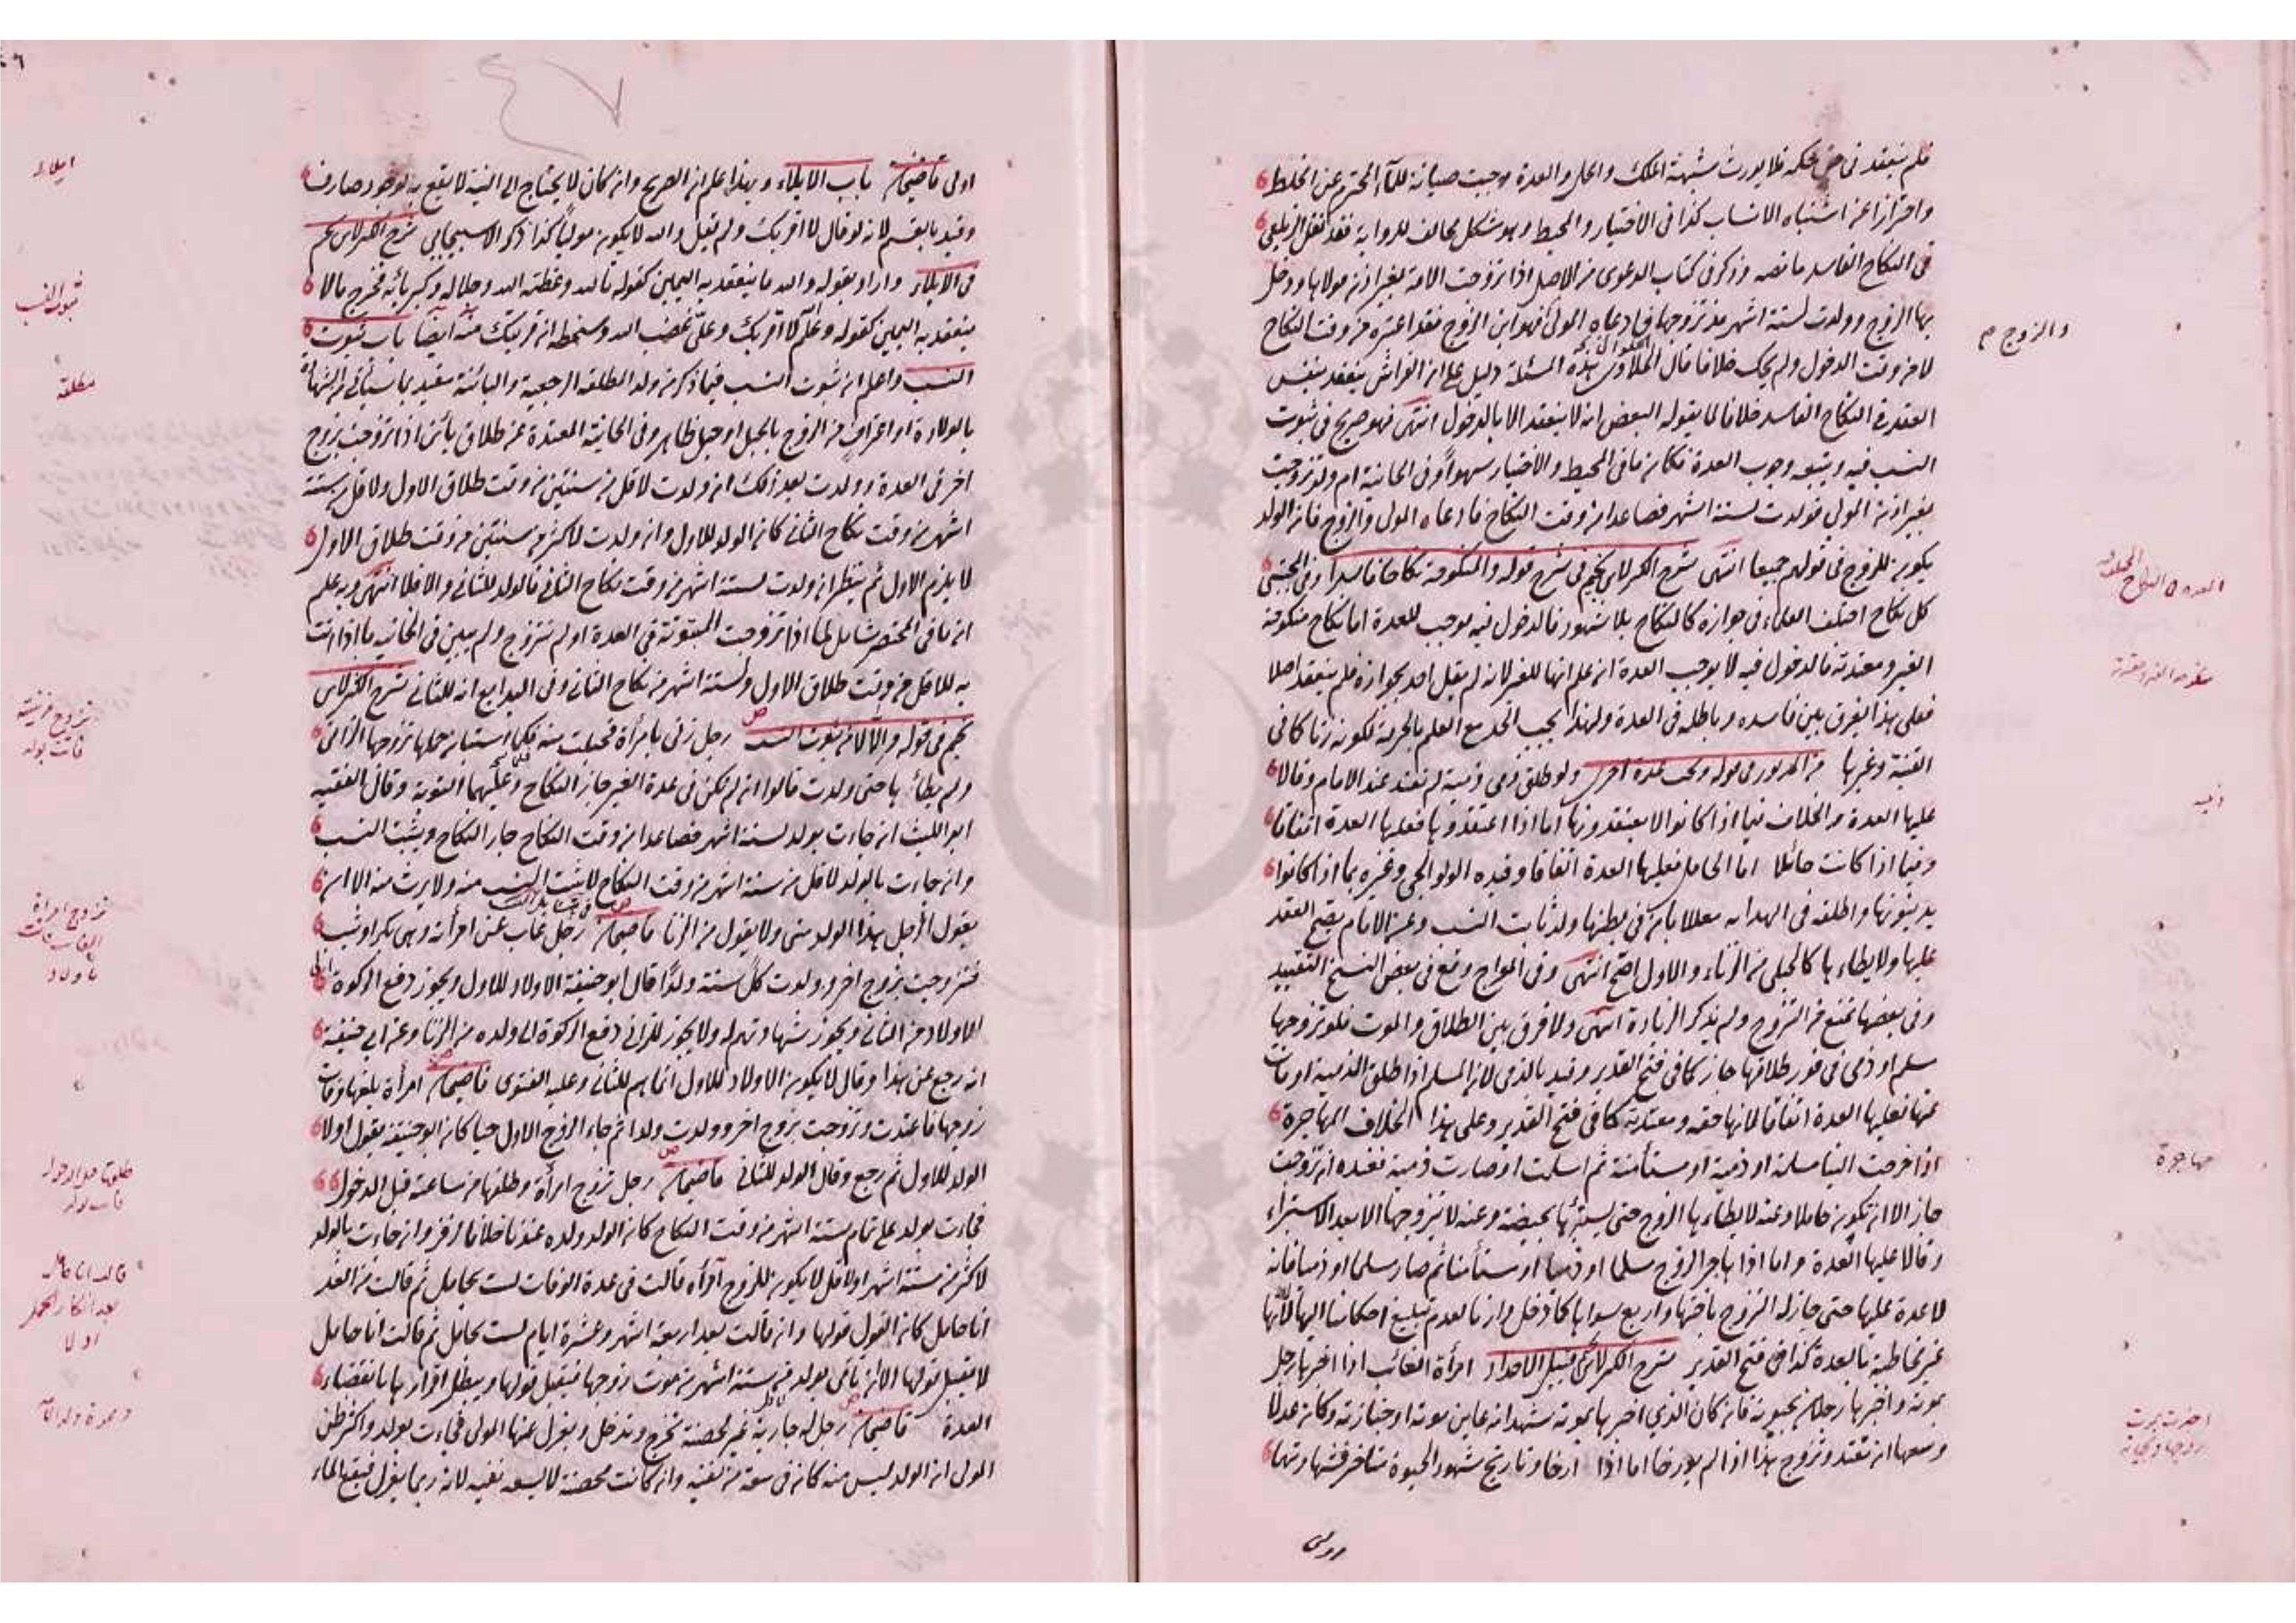 فلم ينعقد في حق حكمه فلا يورث شبهة الملك والحل والعدة وجبت صيانة للماء المحترم عن الخلط
واحترازا عن اشتباه الانساب كذا في الاختيار والمحيط وهو مشكل مخالف للرواية فقد نقل الزيلعي
في النكاح الفاسد ما نصه وذكر في كتاب الدعوى من الاصل اذا تزوجت الامة بغير اذن مولاها ودخل
بها الزوج وولدت لستة اشهر مذ تزوجها فادعاه المولى فهو ابن الزوج فقد اعتبره من وقت النكاح
والزوج م
لا من وقت الدخول ولم يحك خلافا قال الحلواني هذه المسئلة دليل على ان الفراش ينعقد بنفس
العقد في النكاح الفاسد خلافا لما يقوله البعض انه لا ينعقد الا بالدخول انتهى فهو صريح في ثبوت
النسب فيه ويتبعه وجوب العدة فكان ما في المحيط والاختيار سهوا وفي الخانية ام ولد تزوجت
بغير اذن المولى فولدت لستة اشهر فصاعدا من وقت النكاح فادعاه المولى والزوج فان الولد
يكون للزوج في قولهم جميعا انتهى شرح الكنز لابن نجيم في شرح قوله والمنكوحة نكاحا فاسدا وفي المجتبى
كل نكاح اختلف العلماء في جوازه كالنكاح بلا شهود فالدخول فيه موجب للعدة اما نكاح منكوحة
الغير ومعتدته فالدخول فيه لا يوجب العدة ان علم انها للغير لانه لم يقل احد بجوازه فلم ينعقد اصلا
فعلى هذا يفرق بين فاسده وباطله في العدة ولهذا يجب الحد مع العلم بالحرمة لكونه زنا كما في
القنية وغيرها من المزبور في قوله وتجب عدة اخرى ولو طلق ذمي ذمية لم تعتد عند الامام وقالا
ذميه
عليها العدة والخلاف فيما اذا كانوا لا يعتقدونها اما اذا اعتقدوها فعليها العدة اتفاقا
وفيما اذا كانت حائلا اما الحامل فعليها العدة اتفاقا وقيده الولوالجي وغيره بما اذا كانوا
يدينونها واطلقه في الهداية معللا بان في بطنها ولد ثابت النسب وعن الامام يصح العقد
عليها ولا يطاءها كالحبلى من الزناء والاول اصح انتهى وفي المعراج وقع في بعض النسخ التقييد
وفي بعضها تمنع من التزوج ولم يذكر الزيادة انتهى ولا فرق بين الطلاق والموت فلو تزوجها
مسلم او ذمي في فور طلاقها جاز كما في فتح القدير وقيد بالذمي لان المسلم اذا طلق الذمية او مات
عنها فعليها العدة اتفاقا لانها حقه ومعتدته كما في فتح القدير وعلى هذا الخلاف المهاجرة
مهاجرة
اذا خرجت الينا مسلمة او ذمية او مستأمنة ثم اسلمت او صارت ذمية فعنده ان تزوجت
جاز الا ان تكون حاملا وعنه لا يطاءها الزوج حتى يستبرئها بحيضة وعنه لا يتزوجها الا بعد الاستبراء
وقالا عليها العدة واما اذا هاجر الزوج مسلما او ذميا او مستأمنا ثم صار مسلما او ذميا فانه
لا عدة عليها حتى جاز له التزوج باختها واربع سواها كما دخل دارنا لعدم تبليغ احكامنا اليها لانها
غير مخاطبة بالعدة كذا في فتح القدير شرح الكنز لابن نجيم قبيل الاحداد امرأة الغائب اذا اخبرها رجل
بموته واخبرها رجلان بحيوته فان كان الذي اخبرها بموته شهد انه عاين موته او جنازته وكان عدلا
وسعها ان تعتد وتزوج هذا اذا لم يورخا اما اذا ارخا وتاريخ شهود الحيوة متاخر فشهادتها
ايلاء
اولى قاضيخان باب الايلاء وبهذا علم ان الصريح وان كان لا يحتاج الى النية لا يقع به لوجود صارف
وقيد بالقسم لانه لو قال لا اقربك ولم يقل والله لا يكون موليا كذا ذكر الاسبيجابي شرح الكنز لابن نجيم
في الايلاء واراد بقوله والله ما ينعقد به اليمين كقوله تالله وعظمة الله وجلاله وكبريائه فخرج ما لا
ينعقد به اليمين كقوله وعلم لا اقربك وعلي غضب الله وسخطه ان قربتك منه ايضا باب ثبوت
ثبوت النسب
النسب واعلم ان ثبوت النسب فيما ذكر من ولد المطلقة الرجعية والبائنة مقيد بما سيأتي من الشهادة
مطلقة
بالولادة او اعتراف من الزوج بالحبل او حبل ظاهر وفي الخانية المعتدة عن طلاق بائن اذا تزوجت بزوج
اخر في العدة وولدت بعد ذلك ان ولدت لاقل من سنتين من وقت طلاق الاول ولاقل من ستة
اشهر من وقت نكاح الثاني كان الولد للاول وان ولدت لاكثر من سنتين من وقت طلاق الاول
لا يلزم الاول ثم ينظر ان ولدت لستة اشهر من وقت نكاح الثاني فالولد للثاني والا فلا انتهى وبه علم
ان ما في المختصر شامل لما اذا تزوجت المبتوتة في العدة او لم تتزوج ولم يبين في الخانية ما اذا اتت
به للاقل من وقت طلاق الاول ولستة اشهر من نكاح الثاني وفي البدايع انه للثاني شرح الكنز لابن
نجيم في قوله والا لا من ثبوت النسب رجل زنى بامرأة فحبلت منه فلما استبان حملها تزوجها الزاني
ولم يطأها حتى ولدت قالوا ان لم تكن في عدة الغير جاز النكاح وعليهما التوبة وقال الفقيه
ابو الليث ان جاءت بولد لستة اشهر فصاعدا من وقت النكاح جاز النكاح ويثبت النسب
وان جاءت بالولد لاقل من ستة اشهر من وقت النكاح لا يثبت النسب منه ولا يرث منه الا ان
يقول الرجل هذا الولد مني ولا يقول من الزنا قاضيخان رجل غاب عن امرأته وهي بكر او ثيب
فتزوجت بزوج اخر وولدت كل سنة ولدا قال ابو حنيفة الاولاد للاول ويجوز دفع الزكوة الى
الاولاد من الثاني ويجوز شهادتهم له ولا يجوز للزاني دفع الزكوة الى ولده من الزنا وعن ابي حنيفة
انه رجع عن هذا وقال لا يكون الاولاد للاول انما هم للثاني وعليه الفتوى قاضيخان امرأة بلغها وفات
زوجها فاعتدت وتزوجت بزوج اخر وولدت ولدا ثم جاء الزوج الاول حيا كان ابو حنيفة يقول اولا
الولد للاول ثم رجع وقال الولد للثاني قاضيخان رجل تزوج امرأة وطلقها من ساعته قبل الدخول
فجاءت بولد على تمام ستة اشهر من وقت النكاح كان الولد ولده عندنا خلافا لزفر وان جاءت بالولد
لاكثر من ستة اشهر او لاقل لا يكون للزوج امرأة قالت في عدة الوفات لست بحامل ثم قالت من الغد
قالت انا حامل
انا حامل كان القول قولها وان قالت بعد اربعة اشهر وعشرة ايام لست بحامل ثم قالت انا حامل
لا يقبل قولها الا ان تأتي بولد من ستة اشهر من موت زوجها فيقبل قولها ويبطل اقرارها بانقضاء
العدة قاضيخان رجل له جارية غير محصنة تخرج وتدخل ويعزل عنها المولى فجاءت بولد واكثر ظن
المولى ان الولد ليس منه كان في سعة من نفيه وان كانت محصنة لا يسعه نفيه لانه ربما يعزل فيقع الماء